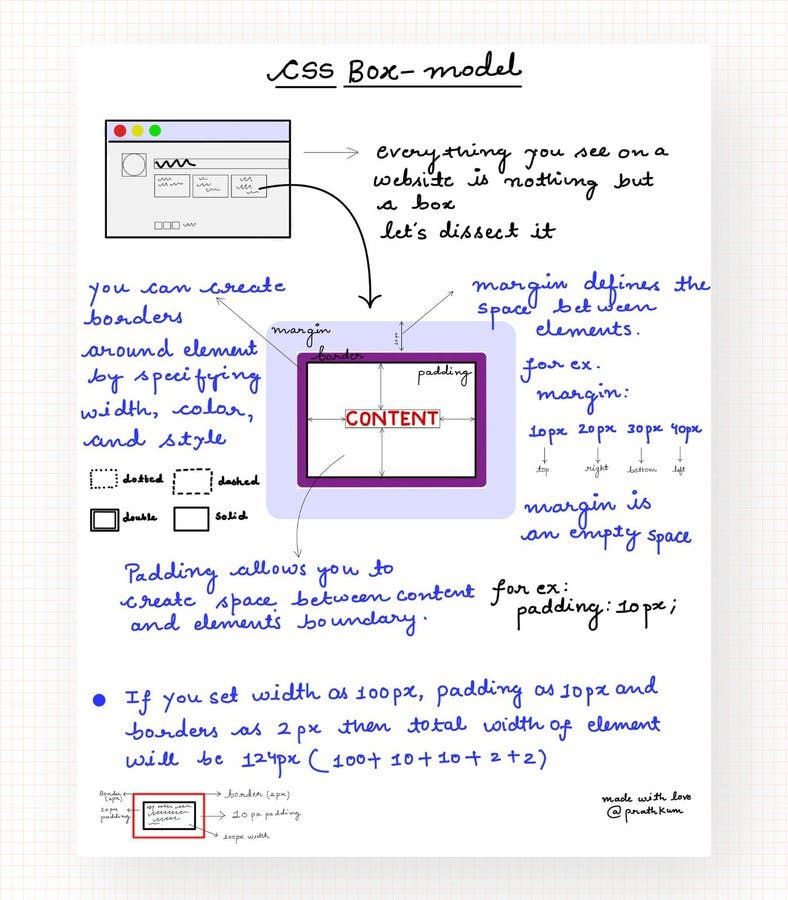 CSS Box-model
everything you see on a
website is nothing but
a box
let's dissect it
you can create
borders
around element
by specifying
width, color,
and style
dotted
dashed
double
solid
margin
border
padding
CONTENT
margin defines the
space between
elements.
for ex.
margin:
10px 20px 30px 40px
top right bottom left
margin is
an empty space
Padding allows you to
create space between content
and elements boundary.
for ex:
padding: 10px;
If you set width as 100px, padding as 10px and
borders as 2px then total width of element
will be 124px (100+10+10+2+2)
Border
(2px)
10px
padding
border (2px)
10px padding
100px width
made with love
@prathkum